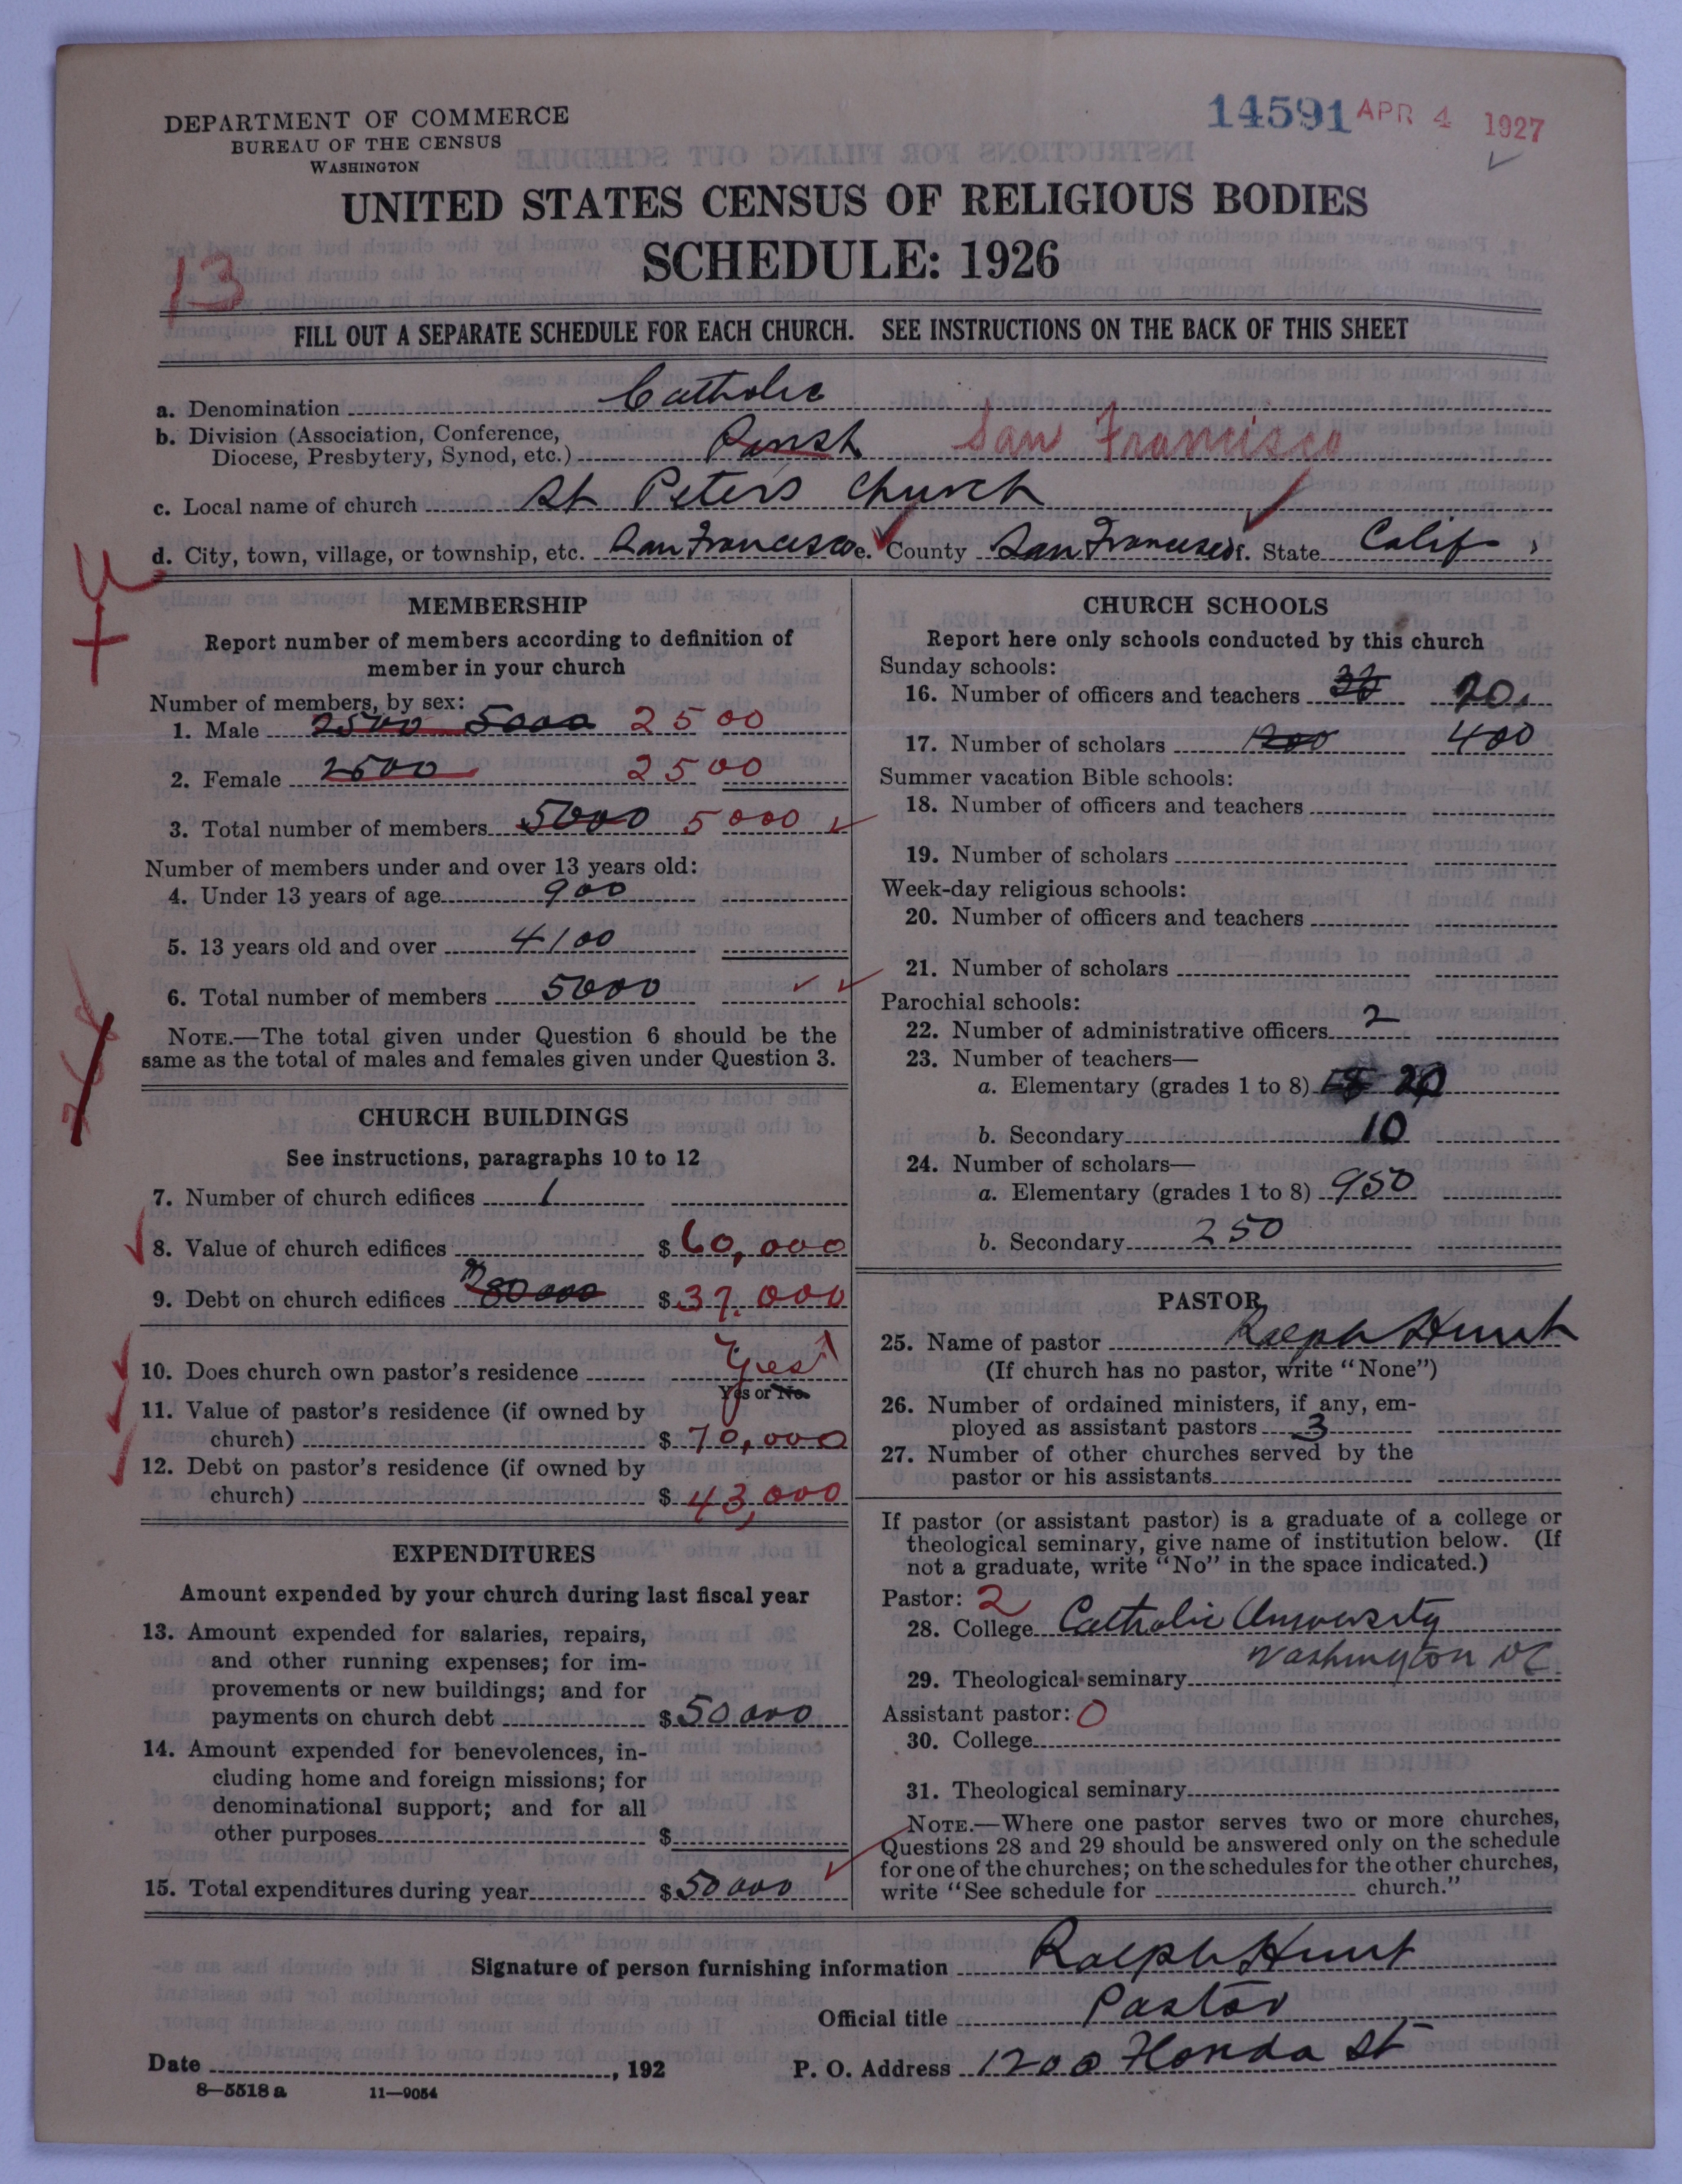 14591 APR 4 1927
DEPARTMENT OF COMMERCE
BUREAU OF THE CENSUS
WASHINGTON
UNITED STATES CENSUS OF RELIGIOUS BODIES
SCHEDULE: 1926
13
FILL OUT A SEPARATE SCHEDULE FOR EACH CHURCH. SEE INSTRUCTIONS ON THE BACK OF THIS SHEET
a. Denomination Catholic
b. Division (Association, Conference,
Diocese, Presbytery, Synod, etc.) Parish San Francisco
c. Local name of church St Peter's Church
d. City, town, village, or township, etc. San Francisco e. County San Francisco f. State Calif
MEMBERSHIP
Report number of members according to definition of
member in your church
Number of members, by sex:
1. Male 2500 5000 2500
2. Female 2500 2500
3. Total number of members 5000 5000
Number of members under and over 13 years old:
4. Under 13 years of age 900
5. 13 years old and over 4100
6. Total number of members 5000
NOTE.—The total given under Question 6 should be the
same as the total of males and females given under Question 3.
CHURCH BUILDINGS
See instructions, paragraphs 10 to 12
7. Number of church edifices 1
8. Value of church edifices $ 60,000
9. Debt on church edifices 80000 $ 37,000
10. Does church own pastor's residence Yes
Yes or No
11. Value of pastor's residence (if owned by
church) $ 70,000
12. Debt on pastor's residence (if owned by
church) $ 43,000
EXPENDITURES
Amount expended by your church during last fiscal year
13. Amount expended for salaries, repairs,
and other running expenses; for im-
provements or new buildings; and for
payments on church debt $ 50000
14. Amount expended for benevolences, in-
cluding home and foreign missions; for
denominational support; and for all
other purposes $
15. Total expenditures during year $ 50000
CHURCH SCHOOLS
Report here only schools conducted by this church
Sunday schools:
16. Number of officers and teachers 20
17. Number of scholars 1200 400
Summer vacation Bible schools:
18. Number of officers and teachers
19. Number of scholars
Week-day religious schools:
20. Number of officers and teachers
21. Number of scholars
Parochial schools:
22. Number of administrative officers 2
23. Number of teachers—
a. Elementary (grades 1 to 8) 20
b. Secondary 10
24. Number of scholars—
a. Elementary (grades 1 to 8) 950
b. Secondary 250
PASTOR
25. Name of pastor Ralph Hunt
(If church has no pastor, write "None")
26. Number of ordained ministers, if any, em-
ployed as assistant pastors 3
27. Number of other churches served by the
pastor or his assistants
If pastor (or assistant pastor) is a graduate of a college or
theological seminary, give name of institution below. (If
not a graduate, write "No" in the space indicated.)
Pastor: 2
28. College Catholic University
Washington DC
29. Theological seminary
Assistant pastor: 0
30. College
31. Theological seminary
NOTE.—Where one pastor serves two or more churches,
Questions 28 and 29 should be answered only on the schedule
for one of the churches; on the schedules for the other churches,
write "See schedule for church."
Signature of person furnishing information Ralph Hunt
Official title Pastor
Date , 192 P. O. Address 1200 Florida St
8—5518 a 11—9054